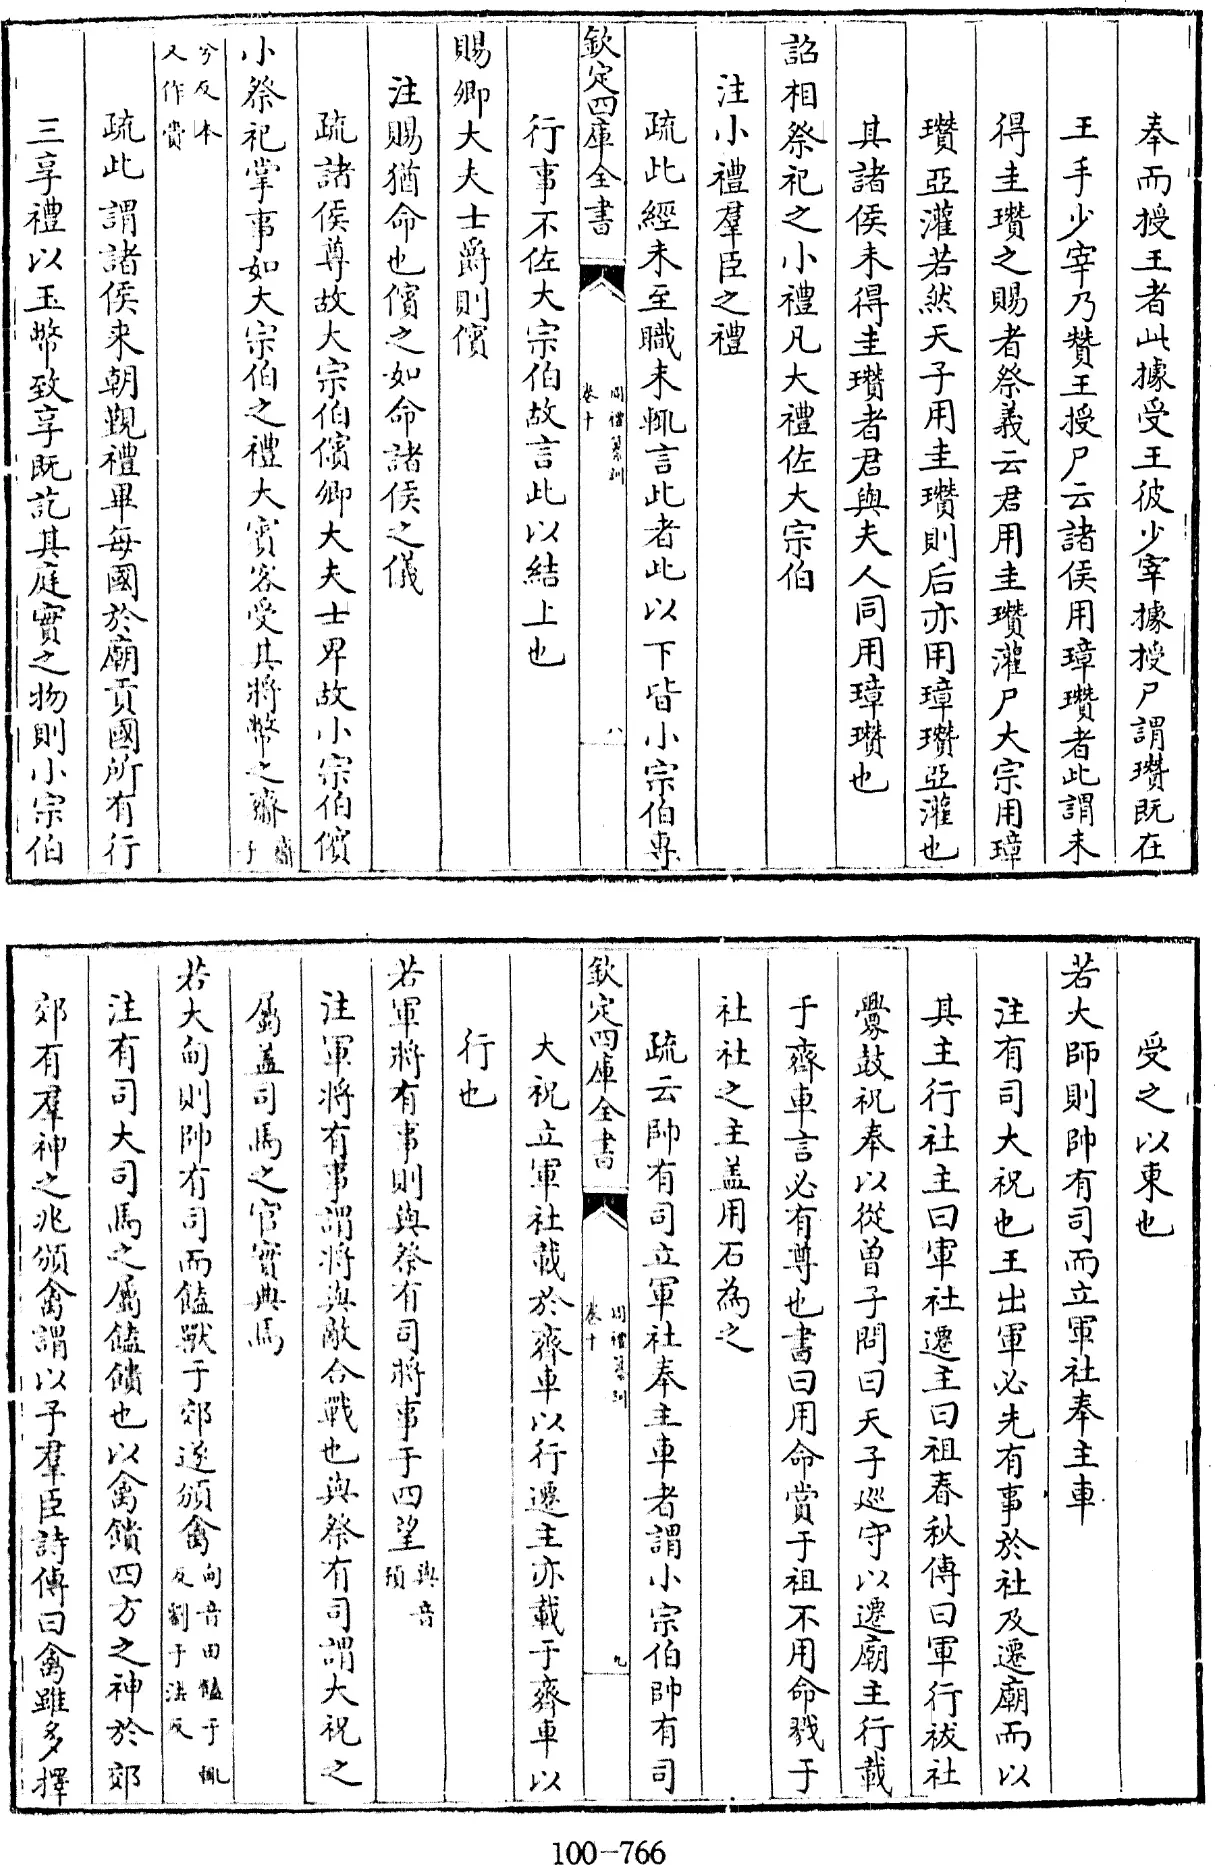 奉而授王者此據受王彼少宰據授尸謂瓚既在
王手少宰乃贊王授尸云諸侯用璋瓚者此謂未
得圭瓚之賜者祭義云君用圭瓚灌尸大宗用璋
瓚亞灌若然天子用圭瓚則后亦用璋瓚亞灌也
其諸侯未得圭瓚者君與夫人同用璋瓚也
詔相祭祀之小禮凡大禮佐大宗伯
注小禮羣臣之禮
疏此經未至職末輒言此者此以下皆小宗伯專
欽定四庫全書
周禮纂訓
卷十
八
行事不佐大宗伯故言此以結上也
賜卿大夫士爵則儐
注賜猶命也儐之如命諸侯之儀
疏諸侯尊故大宗伯儐卿大夫士卑故小宗伯儐
小祭祀掌事如大宗伯之禮大賓客受其將幣之齎齎子
兮反本
又作賫
三享禮以玉幣致享既訖其庭實之物則小宗伯
疏此謂諸侯來朝覲禮畢每國於廟貢國所有行
受之以東也
若大師則帥有司而立軍社奉主車
注有司大祝也王出軍必先有事於社及遷廟而以
其主行社主曰軍社遷主曰祖春秋傳曰軍行祓社
釁鼓祝奉以從曾子問曰天子巡守以遷廟主行載
于齊車言必有尊也書曰用命賞于祖不用命戮于
社社之主蓋用石為之
疏云帥有司立軍社奉主車者謂小宗伯帥有司
欽定四庫全書
周禮纂訓
卷十
九
大祝立軍社載於齊車以行遷主亦載于齊車以
行也
若軍將有事則與祭有司將事于四望與音預
注軍將有事謂將與敵合戰也與祭有司謂大祝之
屬蓋司馬之官實典焉
若大甸則帥有司而饁獸于郊遂頒禽甸音田饁于輒反劉于法反
注有司大司馬之屬饁饋也以禽饋四方之神於郊
郊有羣神之兆頒禽謂以予羣臣詩傳曰禽雖多擇
100-766